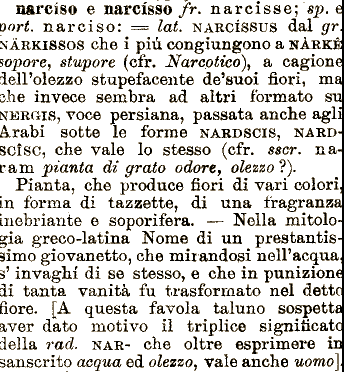 narciso e narcisso fr. narcisse; sp. e
port. narciso: = lat. NARCÍSSUS dal gr.
NÀRKISSOS che i più congiungono a NÀRKÊ
sopore, stupore (cfr. Narcotico), a cagione
dell'olezzo stupefacente de'suoi fiori, ma
che invece sembra ad altri formato su
NERGIS, voce persiana, passata anche agli
Arabi sotte le forme NARDSCIS, NARD-
SCÎSC, che vale lo stesso (cfr. sscr. na-
ram pianta di grato odore, olezzo?).
Pianta, che produce fiori di vari colori,
in forma di tazzette, di una fragranza
inebriante e soporifera. — Nella mitolo-
gia greco-latina Nome di un prestantis-
simo giovanetto, che mirandosi nell'acqua,
s' invaghí di se stesso, e che in punizione
di tanta vanità fu trasformato nel detto
fiore. [A questa favola taluno sospetta
aver dato motivo il triplice significato
della rad. NAR- che oltre esprimere in
sanscrito acqua ed olezzo, vale anche uomo].